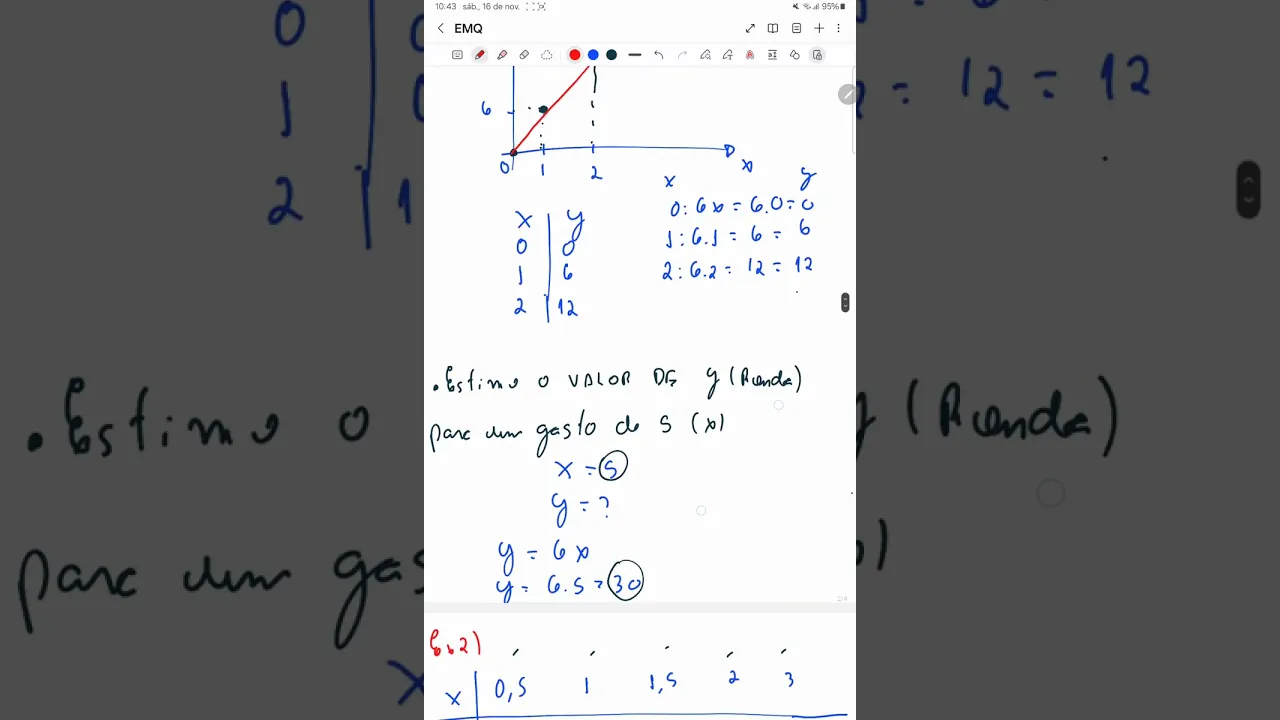 10:43 sáb., 16 de nov. 95%
EMQ
6
0 1 2 x
x y
0 : 6x = 6.0 = 0
1 : 6.1 = 6 = 6
2 : 6.2 = 12 = 12
x y
0 0
1 6
2 12
. Estime o VALOR DE y (Renda)
para um gasto de 5 (x)
x = 5
y = ?
y = 6x
y = 6.5 = 30
2/4
Ex2)
x 0,5 1 1,5 2 3